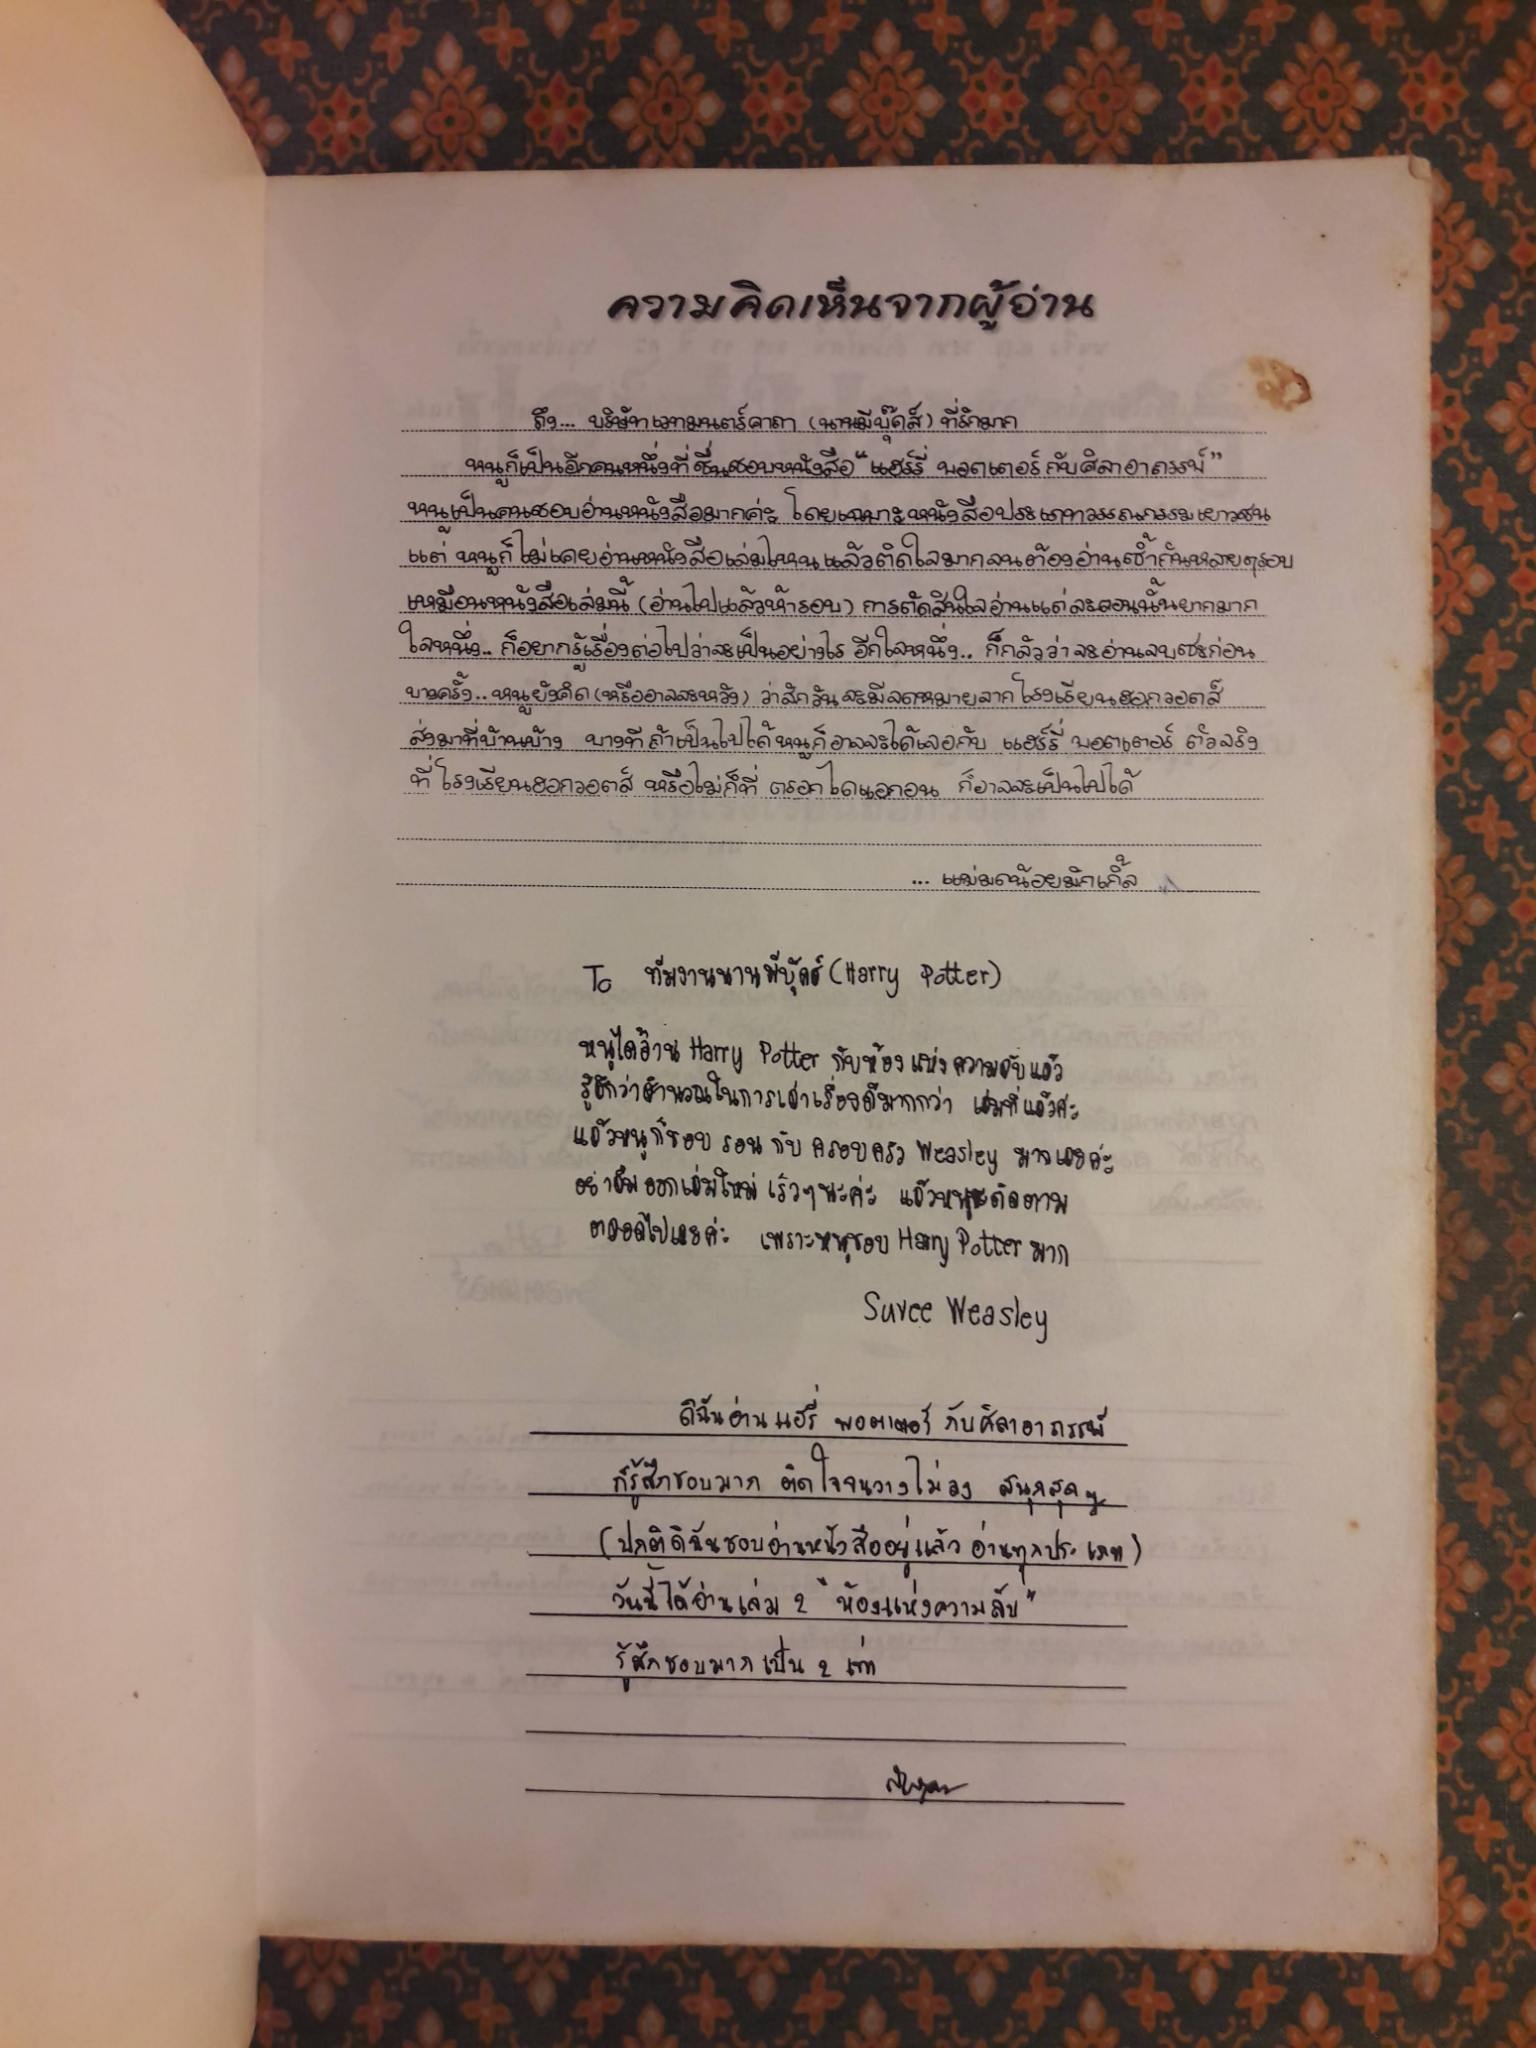 ความคิดเห็นจากผู้อ่าน
ถึง... บริษัทเวทมนตร์คาถา (นานมีบุ๊คส์) ที่รักมาก
หนูก็เป็นอีกคนหนึ่งที่ชื่นชอบหนังสือ "แฮร์รี่ พอตเตอร์กับศิลาอาถรรพ์"
หนูเป็นคนชอบอ่านหนังสือมากค่ะ โดยเฉพาะหนังสือประเภทวรรณกรรมเยาวชน
แต่ หนูก็ไม่เคยอ่านหนังสือเล่มไหนแล้วติดใจมากจนต้องอ่านซ้ำกันหลายๆรอบ
เหมือนหนังสือเล่มนี้ (อ่านไปแล้วห้ารอบ) การตัดสินใจอ่านแต่ละตอนนั้นยากมาก
ใจหนึ่ง.. ก็อยากรู้เรื่องต่อไปว่าจะเป็นอย่างไร อีกใจหนึ่ง.. ก็กลัวว่าจะอ่านจบซะก่อน
บางครั้ง.. หนูยังคิด (หรืออาจจะหวัง) ว่าสักวันจะมีจดหมายจากโรงเรียนฮอกวอตส์
ส่งมาที่บ้านบ้าง บางทีถ้าเป็นไปได้หนูก็อาจจะได้เจอกับ แฮร์รี่ พอตเตอร์ ตัวจริง
ที่โรงเรียนฮอกวอตส์ หรือไม่ก็ที่ ตรอกไดแอกอน ก็อาจจะเป็นไปได้
... แม่มดน้อยมิกเกิ้ล
To ทีมงานนานมีบุ๊คส์ (Harry Potter)
หนูได้อ่าน Harry Potter กับห้องแห่งความลับแล้ว
รู้สึกว่าสำนวนในการเล่าเรื่องดีมากกว่า เล่มที่แล้วค่ะ
แล้วหนูก็ชอบ รอน กับ ครอบครัว Weasley มากเลยค่ะ
อย่าลืมออกเล่มใหม่ เร็วๆนะค่ะ แล้วหนูจะติดตาม
ตลอดไปเลยค่ะ เพราะหนูชอบ Harry Potter มาก
Suree Weasley
ดิฉันอ่าน แฮรี่ พอตเตอร์ กับศิลาอาถรรพ์
ก็รู้สึกชอบมาก ติดใจจนวางไม่ลง สนุกสุดๆ
(ปกติดิฉันชอบอ่านหนังสืออยู่แล้ว อ่านทุกประเภท)
วันนี้ได้อ่านเล่ม 2 "ห้องแห่งความลับ"
รู้สึกชอบมากเป็น 2 เท่า